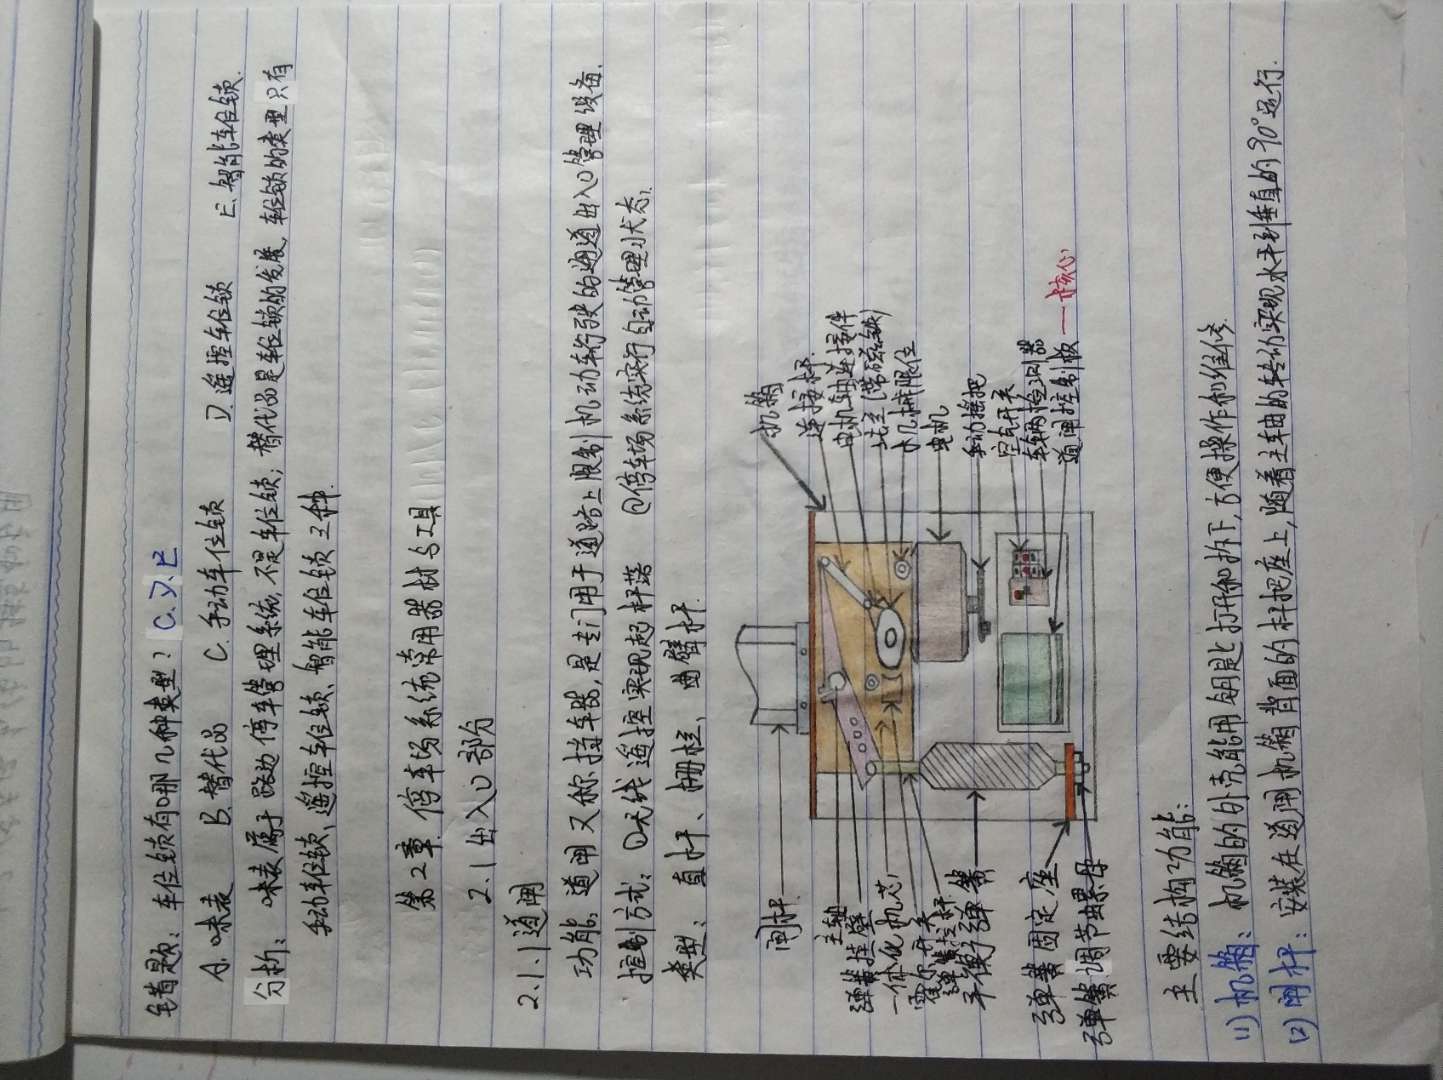 错题：车位锁有哪几种类型？C.D.E
A.咪表 B.替代品 C.手动车位锁 D.遥控车位锁 E.智能车位锁.
分析：咪表属于路边停车管理系统,不是车位锁；替代品是车位锁的发展,车位锁的类型只有
手动车位锁、遥控车位锁、智能车位锁三种.
第2章.停车场系统常用器材与工具
2.1出入口部分
2.1.1道闸
功能：道闸又称挡车器,是专门用于道路上限制机动车行驶的通道出入口管理设备.
控制方式：①无线遥控实现起杆落 ②停车场系统实行自动管理状态.
类型：直杆、栅栏、曲臂杆.
机箱
连接杆
电机轴连接件
(带磁铁)
机械限位
电机
手动摇把
空气开关
车辆检测器
道闸控制板—核心
闸杆
主轴
弹簧挂臂
一体化机芯
霍尔开关
弹簧拉杆
平衡弹簧
弹簧固定座
弹簧调节螺母
主要结构功能：
(1)机箱：机箱的外壳能用钥匙打开和拆下,方便操作和维修.
(2)闸杆：安装在道闸机箱背面的杆把座上,随着主轴的转动实现水平到垂直的90°运行.